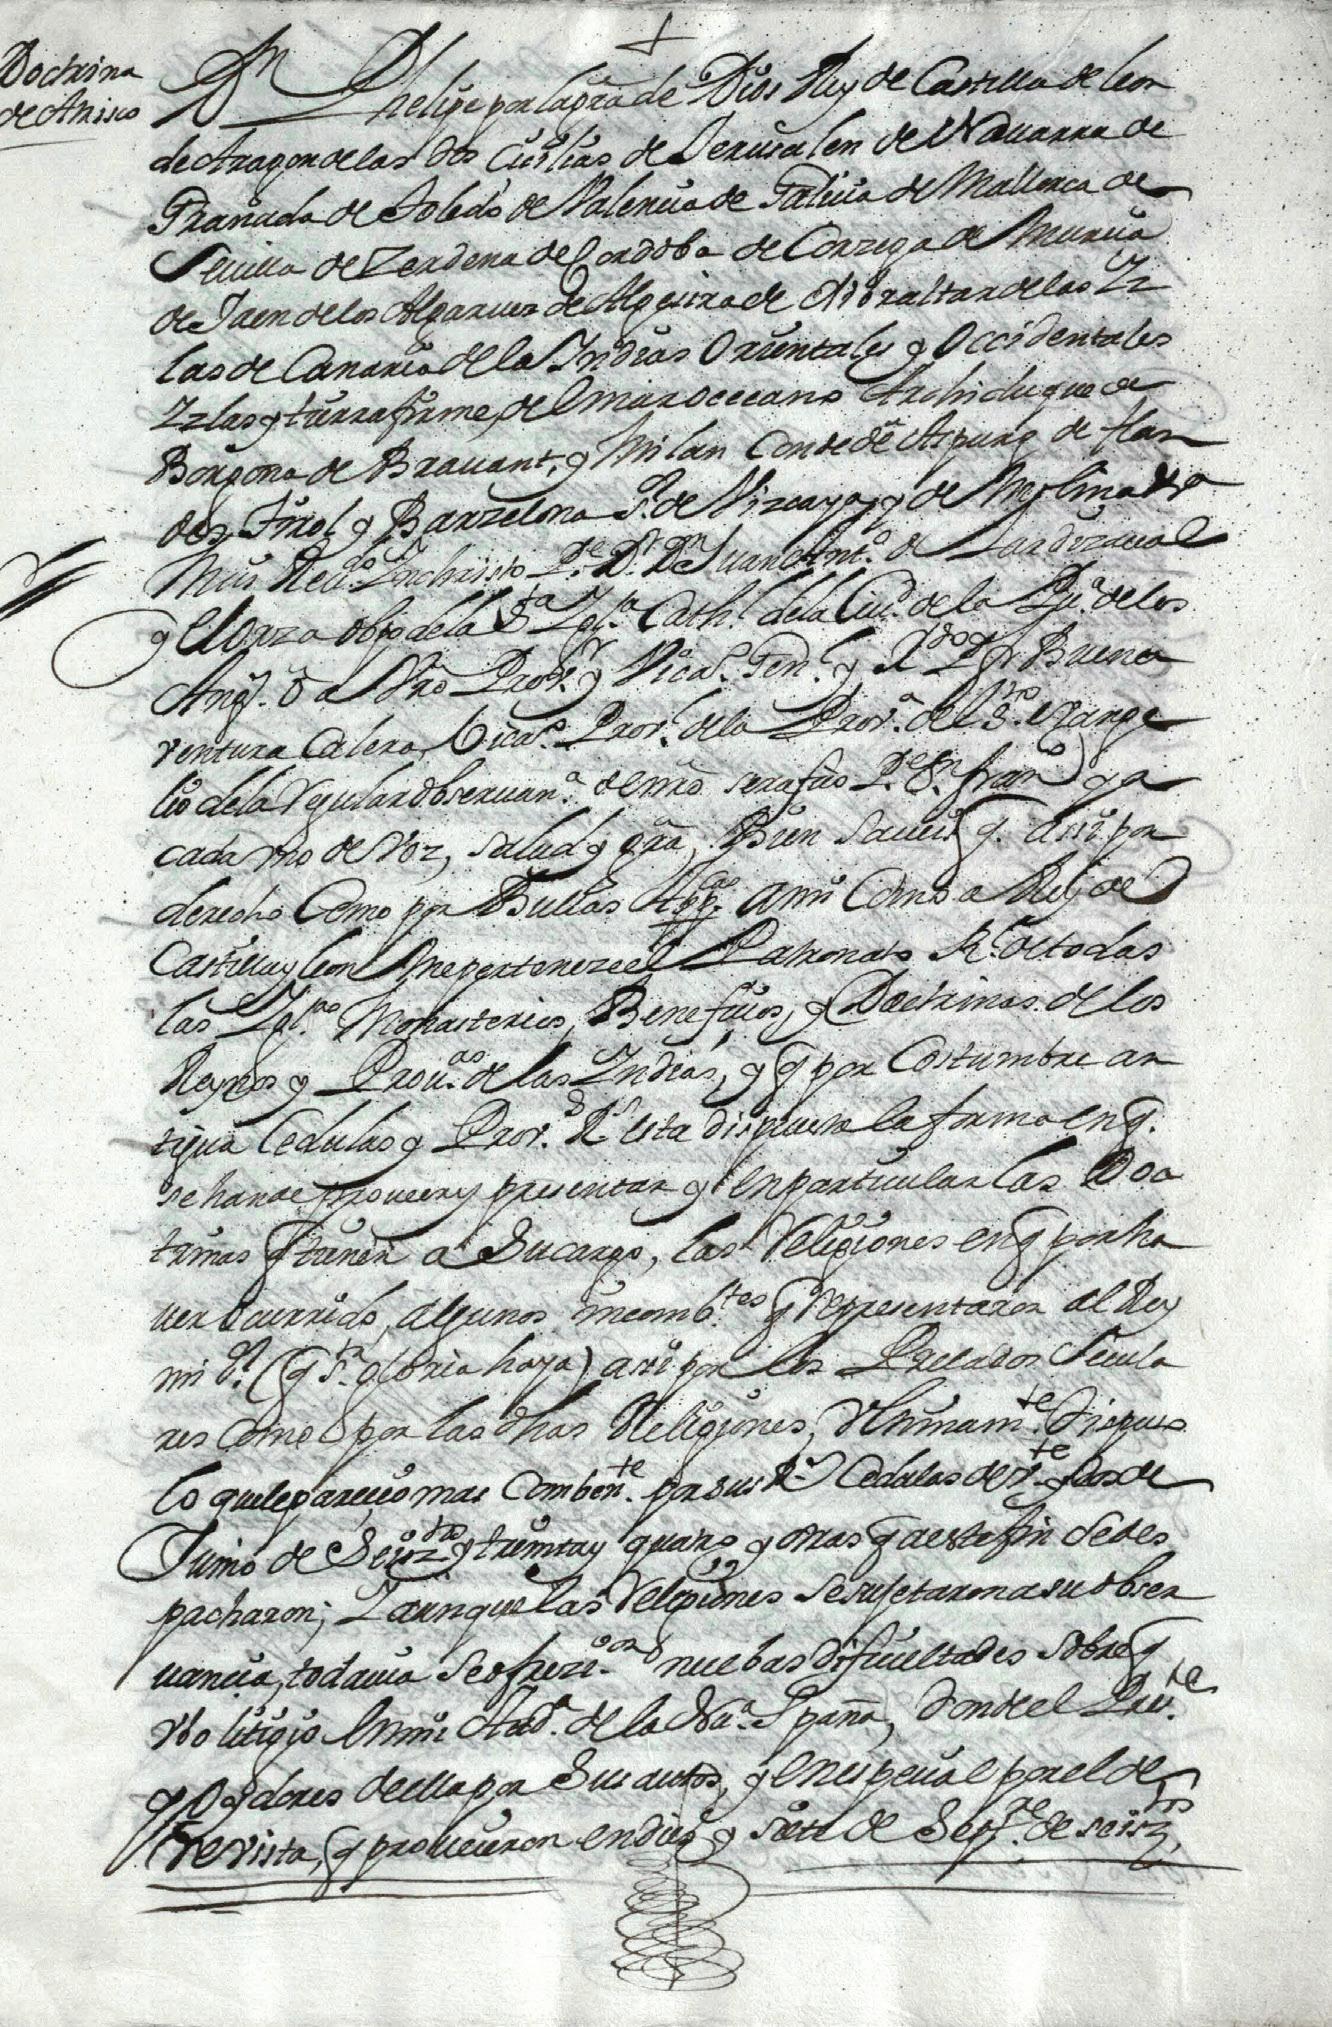 Doctrina
de Atrisco
Dn Phelipe por la gra de Dios Rey de Castilla de leon
de Aragon de las dos Cicilias de Jerusalen de Nauarra de
Granada de Toledo de Valencia de Galicia de Mallorca de
Seuilla de Zerdena de Cordoba de Corzega de Murcia
de Jaen de los Algarues de Algecira de Gibraltar de las Yz
las de Canaria de las Indias Orientales y Occidentales
Yzlas y tierra firme, del mar occeano Archiduque de
Borgoña de Brauant, y Milan Conde de Aspurg de flan
des, Tirol y Barzelona Sr. de Vizcaya, y de Molina
Mui Reudo. Inchristo Pe. Dr. Dn Juan Anto. de Lardizaual
y Elorza obpo de la Sta Yglª Cathl. de la Ciud. de la Pue. de los
Angs. o a Vro Provr. y Vicaº. Genl. y Rdo Pe fr Buena
ventura Calera, Vicaº. Provl. de la Provª. del Sto. evange
lio de la regular obseruanª. de mo. serafico Pe. Sn. franco. y a
cada vno de Voz, salud y gra, Bien saueis q. assi por
derecho Como por Bullas Appcas. a mi Como a Rey de
Castilla y leon Me perteneze el Patronato Rl. de todas
las Yglas. Monasterios, Beneficios, y Doctrinas. de los
Reynos y Prouas. de las Indias, y q por Costumbre an
tigua Cedulas y Provs. Rs esta dispuesta la forma en q.
se han de proueer y presentar y en particular las Doc
trinas q tienen a Su cargo, las Religiones en q por ha
uer ocurrido, algunos incombtes q representaron al Rey
mi Sr. (q sta. gloria haya) assi por los Prelados Secula
res Como por las dhas Religiones, Vltimamte. dispuso
lo que le parecio mas Combente. por sus Rs Cedulas de vte. y dos de
Junio de Seiztos y treinta y quatro y otras q a este fin se des
pacharon; Y aunque las Religiones se sujetaron a su obser
uancia, todauia se ofrezieron nuebas dificultades sobre q
vbo litigio En mi Audª. de la Nuª. España, donde el Presite.
y Oydores de ella por Sus autos, y en especial por el de
revista, q proueieron en diez y siete de Sepre. de seiztos